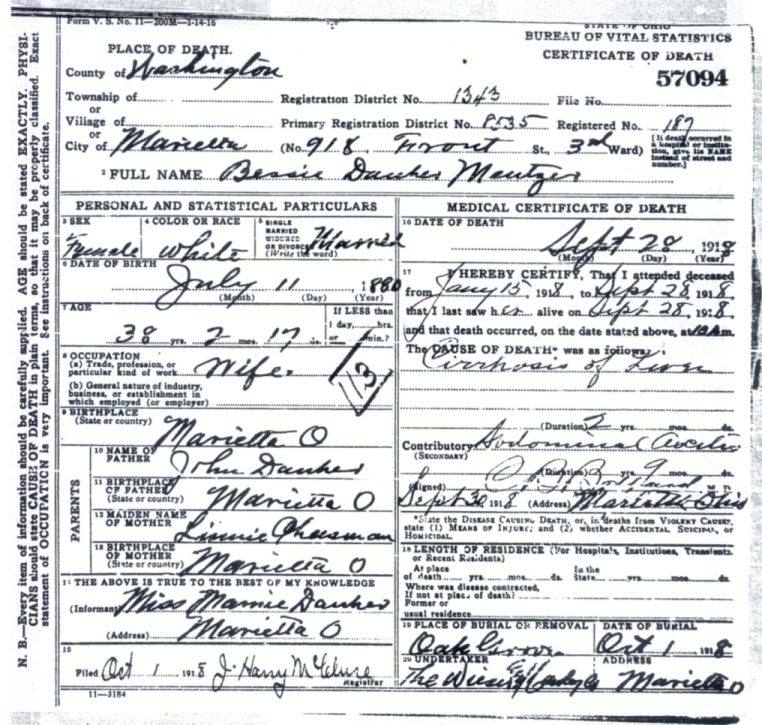 Form V. S. No. 11—200M—1-14-16
STATE OF OHIO
BUREAU OF VITAL STATISTICS
CERTIFICATE OF DEATH
57094
PLACE OF DEATH.
County of Washington
Township of
or
Village of
or
City of Marietta
Registration District No. 1343 File No.
Primary Registration District No. 8535 Registered No. 187
(No. 918 Front St., 3rd Ward)
[If death occurred in a hospital or institution, give its NAME instead of street and number.]
2 FULL NAME Bessie Danker Mentzer
PERSONAL AND STATISTICAL PARTICULARS
3 SEX
Female
4 COLOR OR RACE
White
5 SINGLE
MARRIED
WIDOWED
OR DIVORCED
(Write the word)
Married
6 DATE OF BIRTH
July 11, 1880
(Month) (Day) (Year)
7 AGE
38 yrs. 2 mos. 17 ds.
If LESS than
1 day, hrs.
or min.?
8 OCCUPATION
(a) Trade, profession, or
particular kind of work Wife
(b) General nature of industry,
business, or establishment in
which employed (or employer)
113
9 BIRTHPLACE
(State or country)
Marietta O
PARENTS
10 NAME OF
FATHER
John Danker
11 BIRTHPLACE
OF FATHER
(State or country)
Marietta O
12 MAIDEN NAME
OF MOTHER
Linnie Cheesman
13 BIRTHPLACE
OF MOTHER
(State or country)
Marietta O
THE ABOVE IS TRUE TO THE BEST OF MY KNOWLEDGE
(Informant) Miss Mamie Danker
(Address) Marietta O
15
Filed Oct 1 1918 J. Harry McClure
Registrar
11—3184
MEDICAL CERTIFICATE OF DEATH
16 DATE OF DEATH
Sept 28, 1918
(Month) (Day) (Year)
17 I HEREBY CERTIFY, That I attended deceased
from Jany 15, 1918, to Sept 28, 1918,
that I last saw her alive on Sept 28, 1918,
and that death occurred, on the date stated above, at m.
The CAUSE OF DEATH* was as follows:
Cirrhosis of Liver
(Duration) 2 yrs. mos. ds.
Contributory Abdominal
(SECONDARY)
(Duration) yrs. mos. ds.
(Signed) M. D.
Sept 30, 1918 (Address) Marietta Ohio
*State the DISEASE CAUSING DEATH, or, in deaths from VIOLENT CAUSES,
state (1) MEANS OF INJURY; and (2) whether ACCIDENTAL, SUICIDAL, or
HOMICIDAL.
18 LENGTH OF RESIDENCE (For Hospitals, Institutions, Transients,
or Recent Residents)
At place
of death yrs. mos. ds.
In the
State yrs. mos. ds.
Where was disease contracted,
If not at place of death?
Former or
usual residence
19 PLACE OF BURIAL OR REMOVAL
Oak Grove
DATE OF BURIAL
Oct 1, 1918
20 UNDERTAKER
The
ADDRESS
Marietta O
N. B.—Every item of information should be carefully supplied. AGE should be stated EXACTLY. PHYSI-
CIANS should state CAUSE OF DEATH in plain terms, so that it may be properly classified. Exact
statement of OCCUPATION is very important. See instructions on back of certificate.